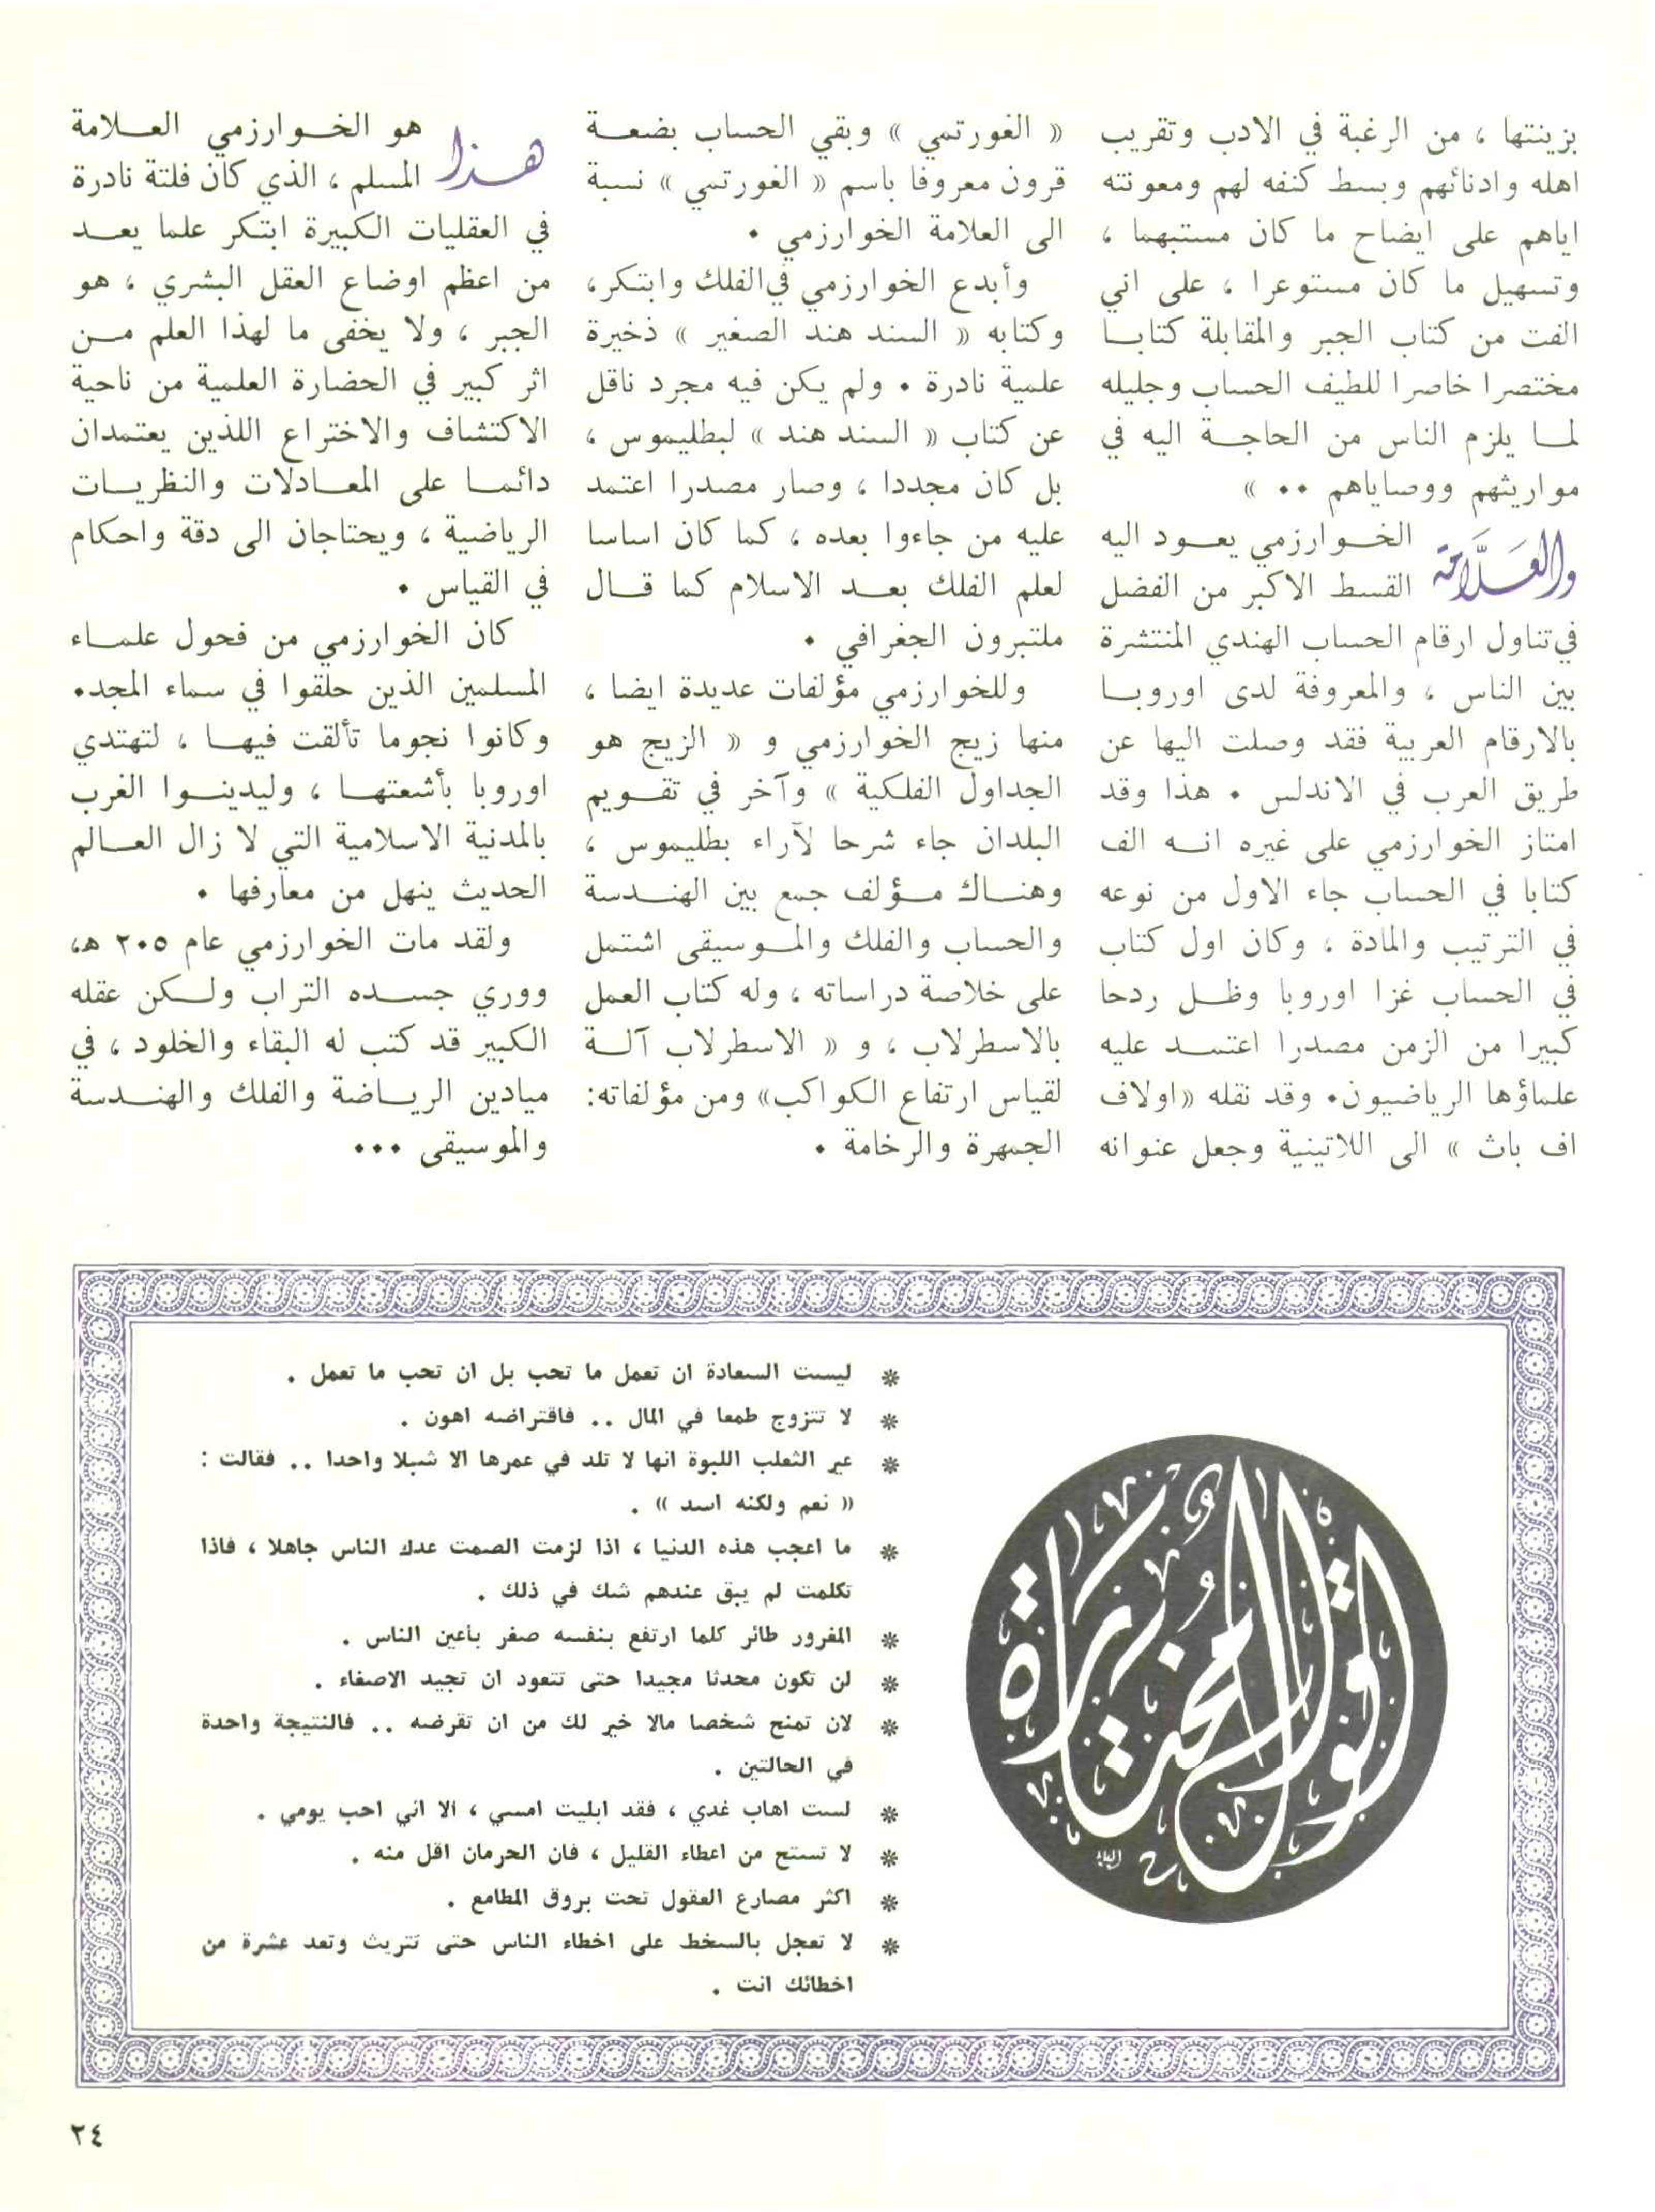 بزينتها ، من الرغبة في الادب وتقريب
اهله وادنائهم وبسط كنفه لهم ومعونته
اياهم على ايضاح ما كان مستبهما ،
وتسهيل ما كان مستوعرا ، على اني
الفت من كتاب الجبر والمقابلة كتابا
مختصرا خاصرا للطيف الحساب وجليله
لما يلزم الناس من الحاجة اليه في
مواريثهم ووصاياهم •• »
والعلامة الخوارزمي يعود اليه
القسط الاكبر من الفضل
في تناول ارقام الحساب الهندي المنتشرة
بين الناس ، والمعروفة لدى اوروبا
بالارقام العربية فقد وصلت اليها عن
طريق العرب في الاندلس • هذا وقد
امتاز الخوارزمي على غيره انه الف
كتابا في الحساب جاء الاول من نوعه
في الترتيب والمادة ، وكان اول كتاب
في الحساب غزا اوروبا وظل ردحا
كبيرا من الزمن مصدرا اعتمد عليه
علماؤها الرياضيون• وقد نقله «اولاف
اف باث » الى اللاتينية وجعل عنوانه
« الغورتمي » وبقي الحساب بضعة
قرون معروفا باسم « الغورتمي » نسبة
الى العلامة الخوارزمي •
وأبدع الخوارزمي في الفلك وابتكر،
وكتابه « السند هند الصغير » ذخيرة
علمية نادرة • ولم يكن فيه مجرد ناقل
عن كتاب « السند هند » لبطليموس ،
بل كان مجددا ، وصار مصدرا اعتمد
عليه من جاءوا بعده ، كما كان اساسا
لعلم الفلك بعد الاسلام كما قال
ملتبرون الجغرافي •
وللخوارزمي مؤلفات عديدة ايضا ،
منها زيج الخوارزمي و « الزيج هو
الجداول الفلكية » وآخر في تقويم
البلدان جاء شرحا لآراء بطليموس ،
وهناك مؤلف جمع بين الهندسة
والحساب والفلك والموسيقى اشتمل
على خلاصة دراساته ، وله كتاب العمل
بالاسطرلاب ، و « الاسطرلاب آلة
لقياس ارتفاع الكواكب» ومن مؤلفاته:
الجمهرة والرخامة •
هذا هو الخوارزمي العلامة
المسلم ، الذي كان فلتة نادرة
في العقليات الكبيرة ابتكر علما يعد
من اعظم اوضاع العقل البشري ، هو
الجبر ، ولا يخفى ما لهذا العلم من
اثر كبير في الحضارة العلمية من ناحية
الاكتشاف والاختراع اللذين يعتمدان
دائما على المعادلات والنظريات
الرياضية ، ويحتاجان الى دقة واحكام
في القياس •
كان الخوارزمي من فحول علماء
المسلمين الذين حلقوا في سماء المجد•
وكانوا نجوما تألقت فيها ، لتهتدي
اوروبا بأشعتها ، وليدينوا الغرب
بالمدنية الاسلامية التي لا زال العالم
الحديث ينهل من معارفها •
ولقد مات الخوارزمي عام ٢٠٥ هـ،
ووري جسده التراب ولكن عقله
الكبير قد كتب له البقاء والخلود ، في
ميادين الرياضة والفلك والهندسة
والموسيقى •••
اقوال مختارة
* ليست السعادة ان تعمل ما تحب بل ان تحب ما تعمل .
* لا تتزوج طمعا في المال .. فاقتراضه اهون .
* عير الثعلب اللبوة انها لا تلد في عمرها الا شبلا واحدا .. فقالت :
« نعم ولكنه اسد » .
* ما اعجب هذه الدنيا ، اذا لزمت الصمت عدك الناس جاهلا ، فاذا
تكلمت لم يبق عندهم شك في ذلك .
* المغرور طائر كلما ارتفع بنفسه صغر بأعين الناس .
* لن تكون محدثا مجيدا حتى تتعود ان تجيد الاصغاء .
* لان تمنح شخصا مالا خير لك من ان تقرضه .. فالنتيجة واحدة
في الحالتين .
* لست اهاب غدي ، فقد ابليت امسي ، الا اني احب يومي .
* لا تستح من اعطاء القليل ، فان الحرمان اقل منه .
* اكثر مصارع العقول تحت بروق المطامع .
* لا تعجل بالسخط على اخطاء الناس حتى تتريث وتعد عشرة من
اخطائك انت .
٢٤